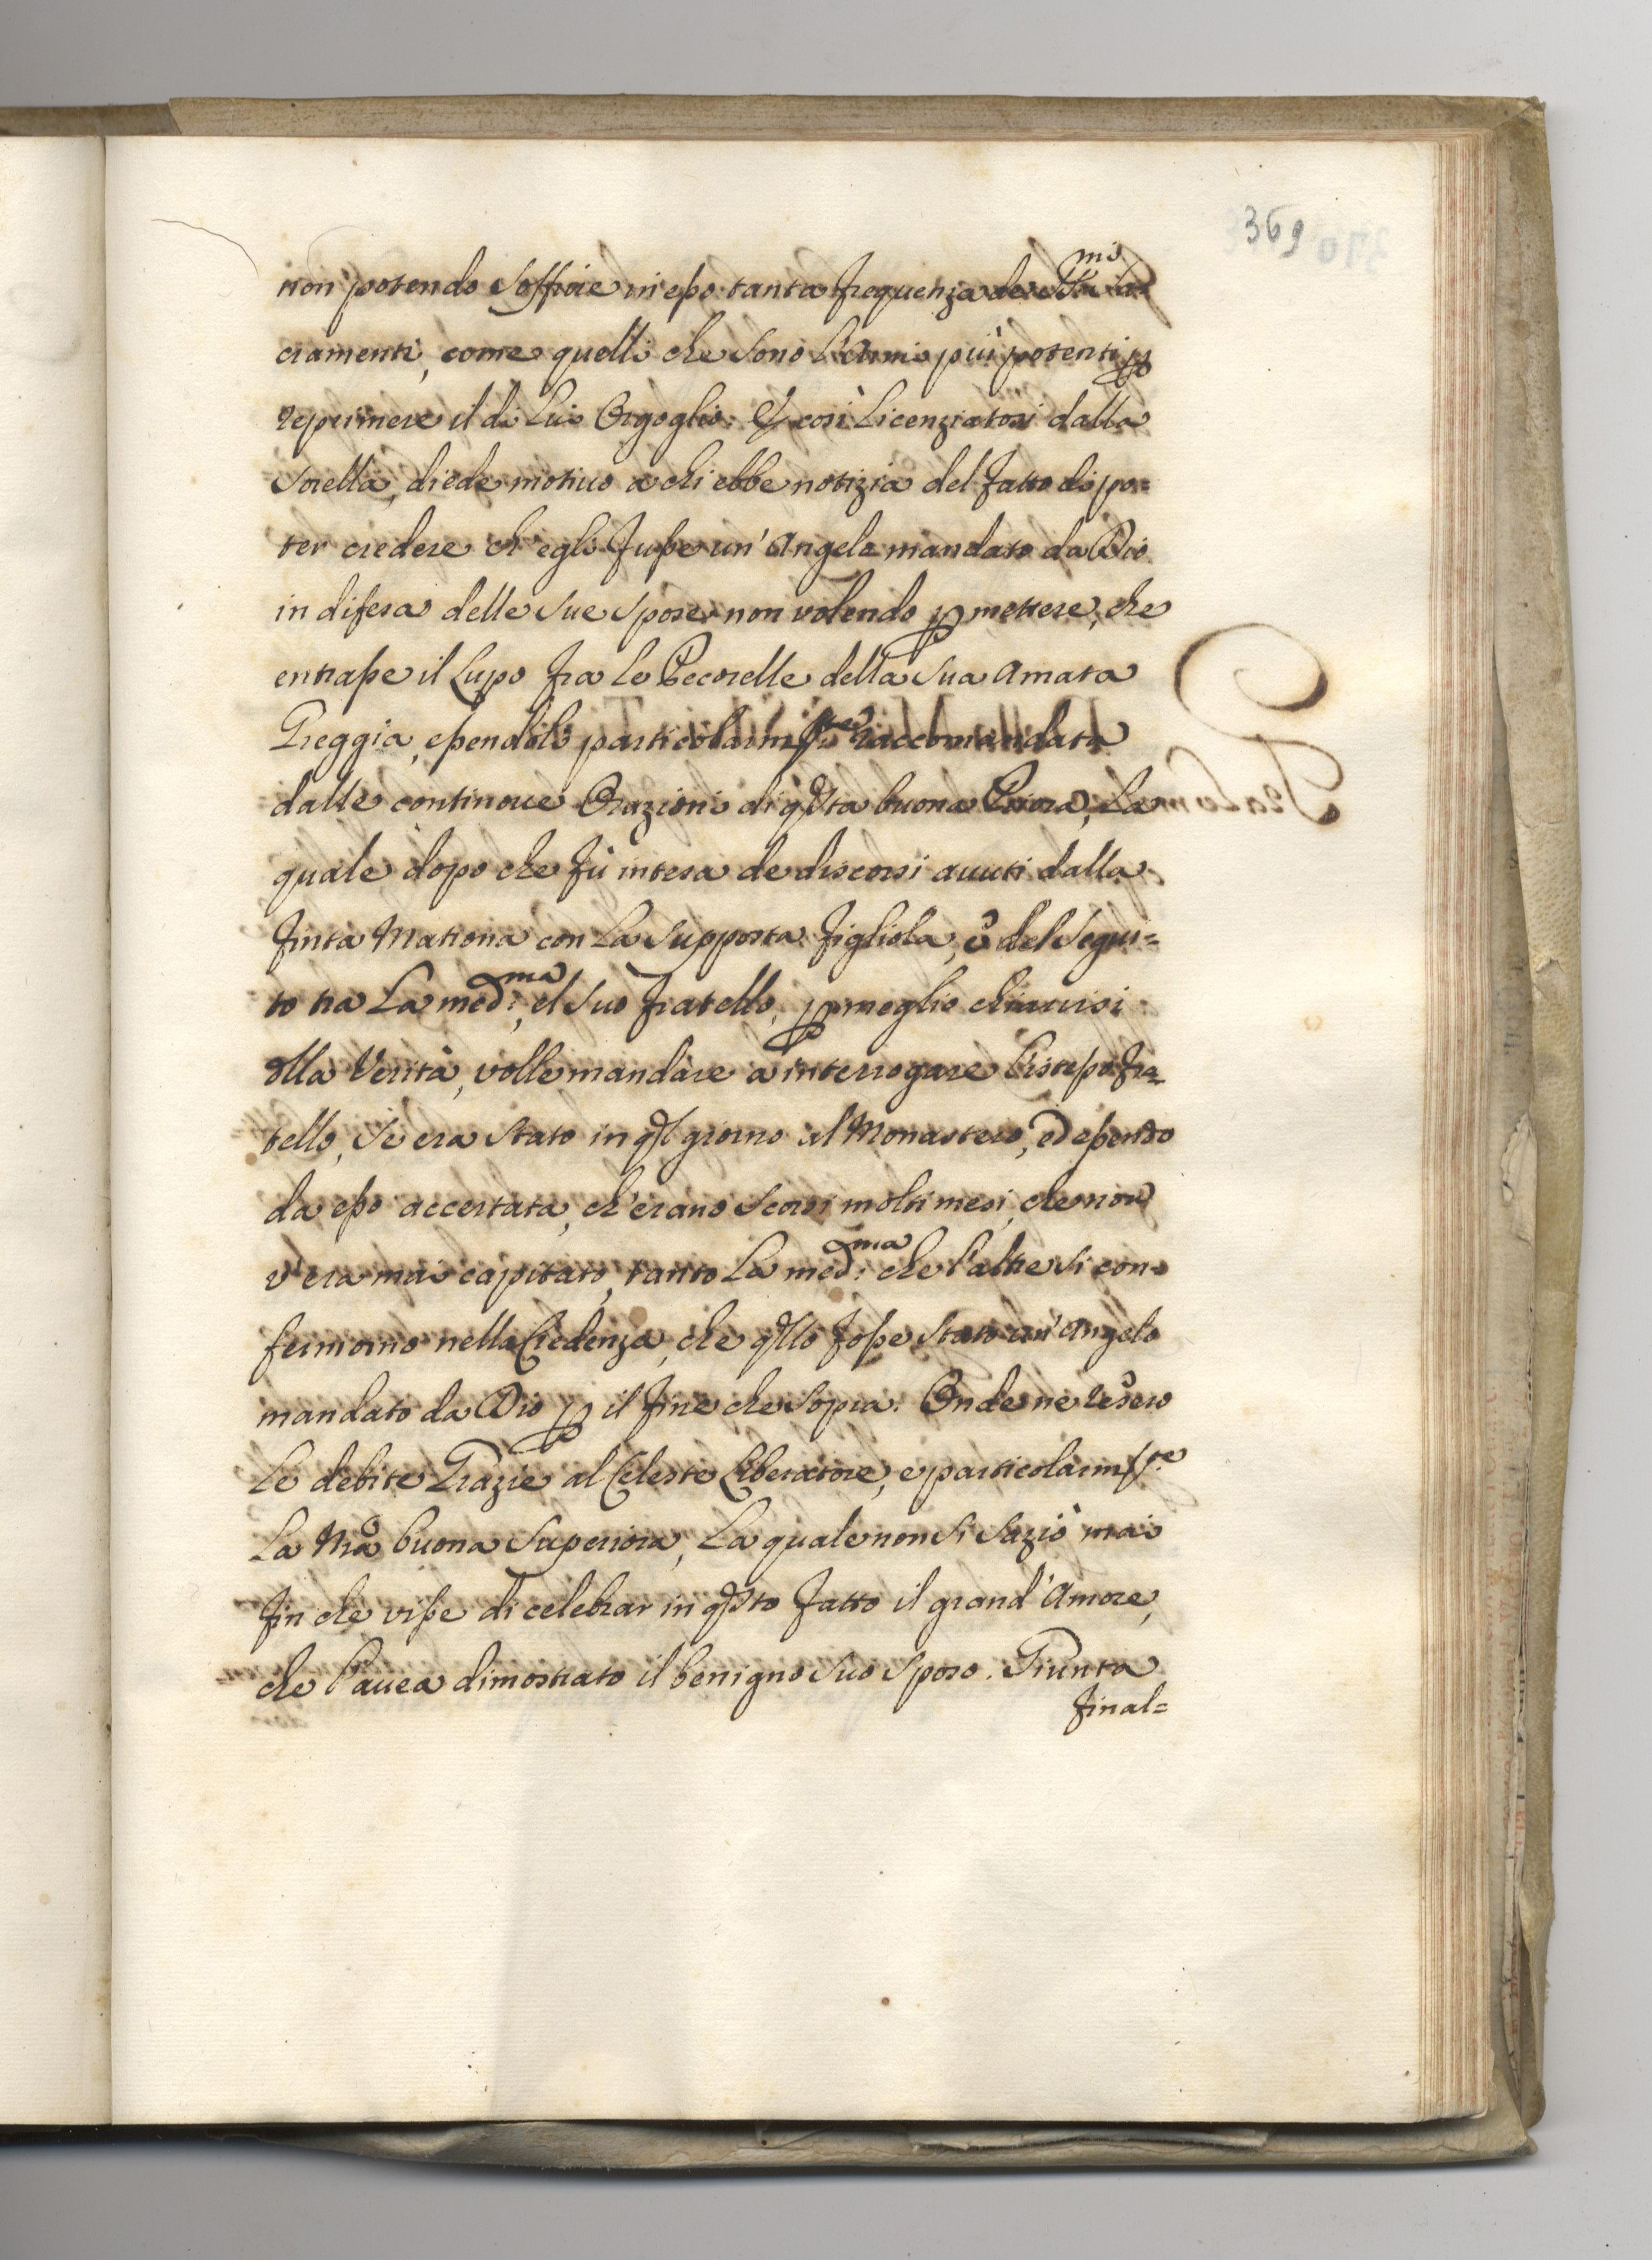 369
non potendo soffrire in esso tanta frequenza de SS.mi Sa=
cramenti, come quelli che sono l'Armi più potenti p
reprimere il di Lui Orgoglio: E così Licenziatosi dalla
Sorella, diede motivo a chi ebbe notizia del fatto di po=
ter credere ch'egli fusse un'Angelo mandato da Dio
in difesa delle sue spose non volendo pmettere, che
entrasse il Lupo fra Le Pecorelle della sua Amata
Greggia, essendoli particolarm.te raccomandata
dalle continoue Orazioni di qsta buona Priora, La
quale dopo che fù intesa de discorsi auuti dalla
finta Matrona con La supposta figliola, e del segui=
to tra La med.ma, el suo fratello, p meglio chiarirsi
dlla Verità, volle mandare a interrogare L'istesso fra=
tello, se era stato in ql giorno al Monastero, ed essendo
da esso accertata, ch'erano scorsi molti mesi, che non
v'era mai capitato, tanto La med.ma che l'altre si con=
fermorno nella Credenza, che qllo fosse stato un'Angelo
mandato da Dio p il fine che sopra. Onde ne resero
Le debite Grazie al Celeste Liberatore, e particolarm.te
La nra buona Superiora, La quale non si saziò mai
fin che visse di celebrar in qsto fatto il grand'Amore,
che l'auea dimostrato il benigno suo sposo. Giunta
final=